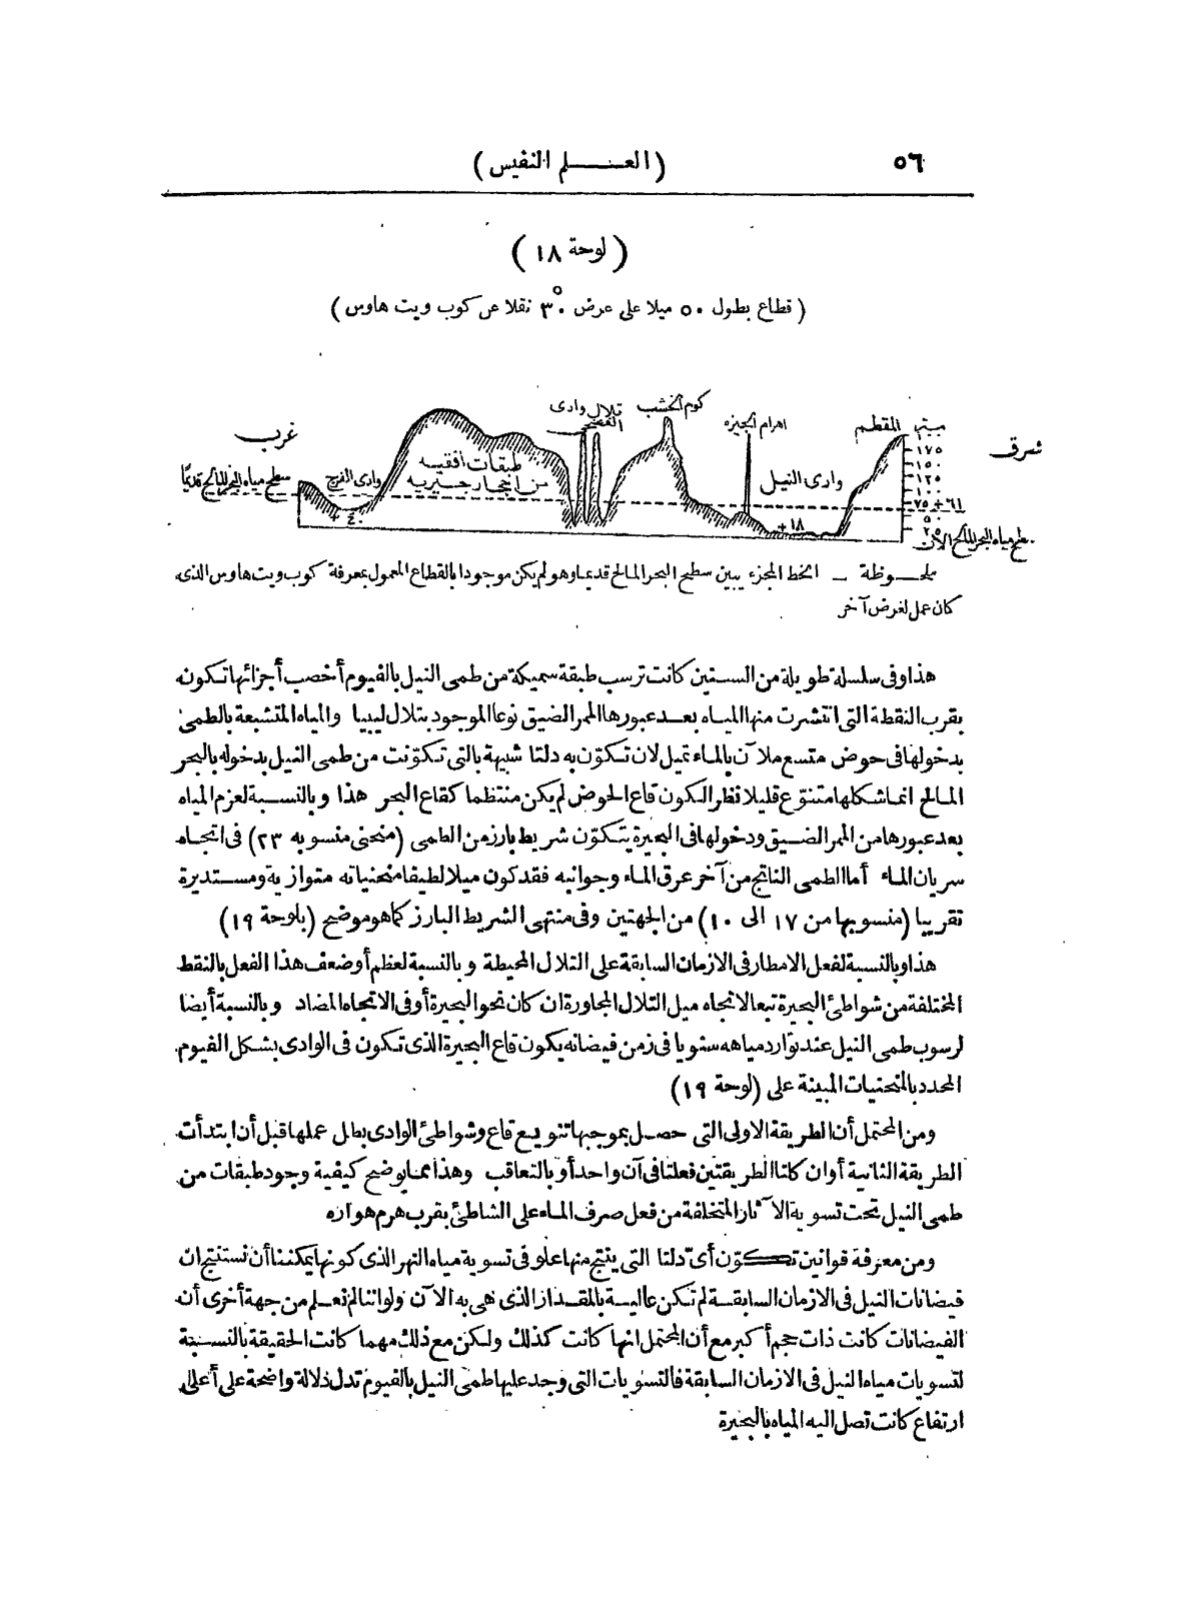 ٥٦
(العلم النفيس)
(لوحة ١٨)
(قطاع بطول ٥٠ ميلا على عرض ٣٠° نقلا عن كوب ويت هاوس)
شرق
ميتر
المقطم
اهرام الجيزه
كوم الخشب
تلال وادى
غرب
١٧٥
١٥٠
١٢٥
١٠٠
٧٥ + ٦١
٥٠
٢٥
وادى النيل
+١٨
طبقات أفقيه
من احجار جيريه
وادى الفرج
+ ٤٠
سطح مياه البحر المالح قديمًا
سطح مياه البحر المالح الآن
ملحوظة – الخط المجزء يبين سطح البحر المالح قديما وهو لم يكن موجودا بالقطاع المعمول بمعرفة كوب ويت هاوس الذى
كان عمل لغرض آخر
هذا وفى سلسلة طويلة من السنين كانت ترسب طبقة سميكة من طمى النيل بالفيوم أخصب أجزائها تكون
بقرب النقطة التى انتشرت منها المياه بعد عبورها الممر الضيق نوعا الموجود بتلال ليبيا والمياه المتشبعة بالطمى
بدخولها فى حوض متسع ملآن بالماء تميل لان تكوّن به دلتا شبيهة بالتى تكوّنت من طمى النيل بدخوله بالبحر
المالح انما شكلها متنوّع قليلا نظرا لكون قاع الحوض لم يكن منتظما كقاع البحر هذا وبالنسبة لعزم المياه
بعد عبورها من الممر الضيق ودخولها فى البحيرة يتكوّن شريط بارز من الطمى (منحنى منسوبه ٢٣) فى اتجاه
سريان الماء أما الطمى الناتج من آخر عرق الماء وجوانبه فقد كون ميلا لطيفا منحنياته متوازية ومستديرة
تقريبا (منسوبها من ١٧ الى ١٠) من الجهتين وفى منتهى الشريط البارز كما هو موضح (بلوحة ١٩)
هذا وبالنسبة لفعل الامطار فى الازمان السابقة على التلال المحيطة وبالنسبة لعظم أو ضعف هذا الفعل بالنقط
المختلفة من شواطئ البحيرة تبعا لاتجاه ميل التلال المجاورة ان كان نحو البحيرة أو فى الاتجاه المضاد وبالنسبة أيضا
لرسوب طمى النيل عند توارد مياهه سنويا فى زمن فيضانه يكون قاع البحيرة الذى تكون فى الوادى بشكل الفيوم
المحدد بالمنحنيات المبينة على (لوحة ١٩)
ومن المحتمل أن الطريقة الاولى التى حصل بموجبها تنويع قاع وشواطئ الوادى بطل عملها قبل أن ابتدأت
الطريقة الثانية أو ان كلتا الطريقتين فعلتا فى آن واحد أو بالتعاقب وهذا مما يوضح كيفية وجود طبقات من
طمى النيل تحت تسوية الآثار المتخلفة من فعل صرف الماء على الشاطئ بقرب هرم هواره
ومن معرفة قوانين تكوّن أىّ دلتا التى ينتج منها علو فى تسوية مياه النهر الذى كونها يمكننا أن نستنتج ان
فيضانات النيل فى الازمان السابقة لم تكن عالية بالمقدار الذى هى به الآن ولو اننا لم نعلم من جهة أخرى أن
الفيضانات كانت ذات حجم أكبر مع أن المحتمل انها كانت كذلك ولكن مع ذلك مهما كانت الحقيقة بالنسبة
لتسويات مياه النيل فى الازمان السابقة فالتسويات التى وجد عليها طمى النيل بالفيوم تدل دلالة واضحة على أعلى
ارتفاع كانت تصل اليه المياه بالبحيرة